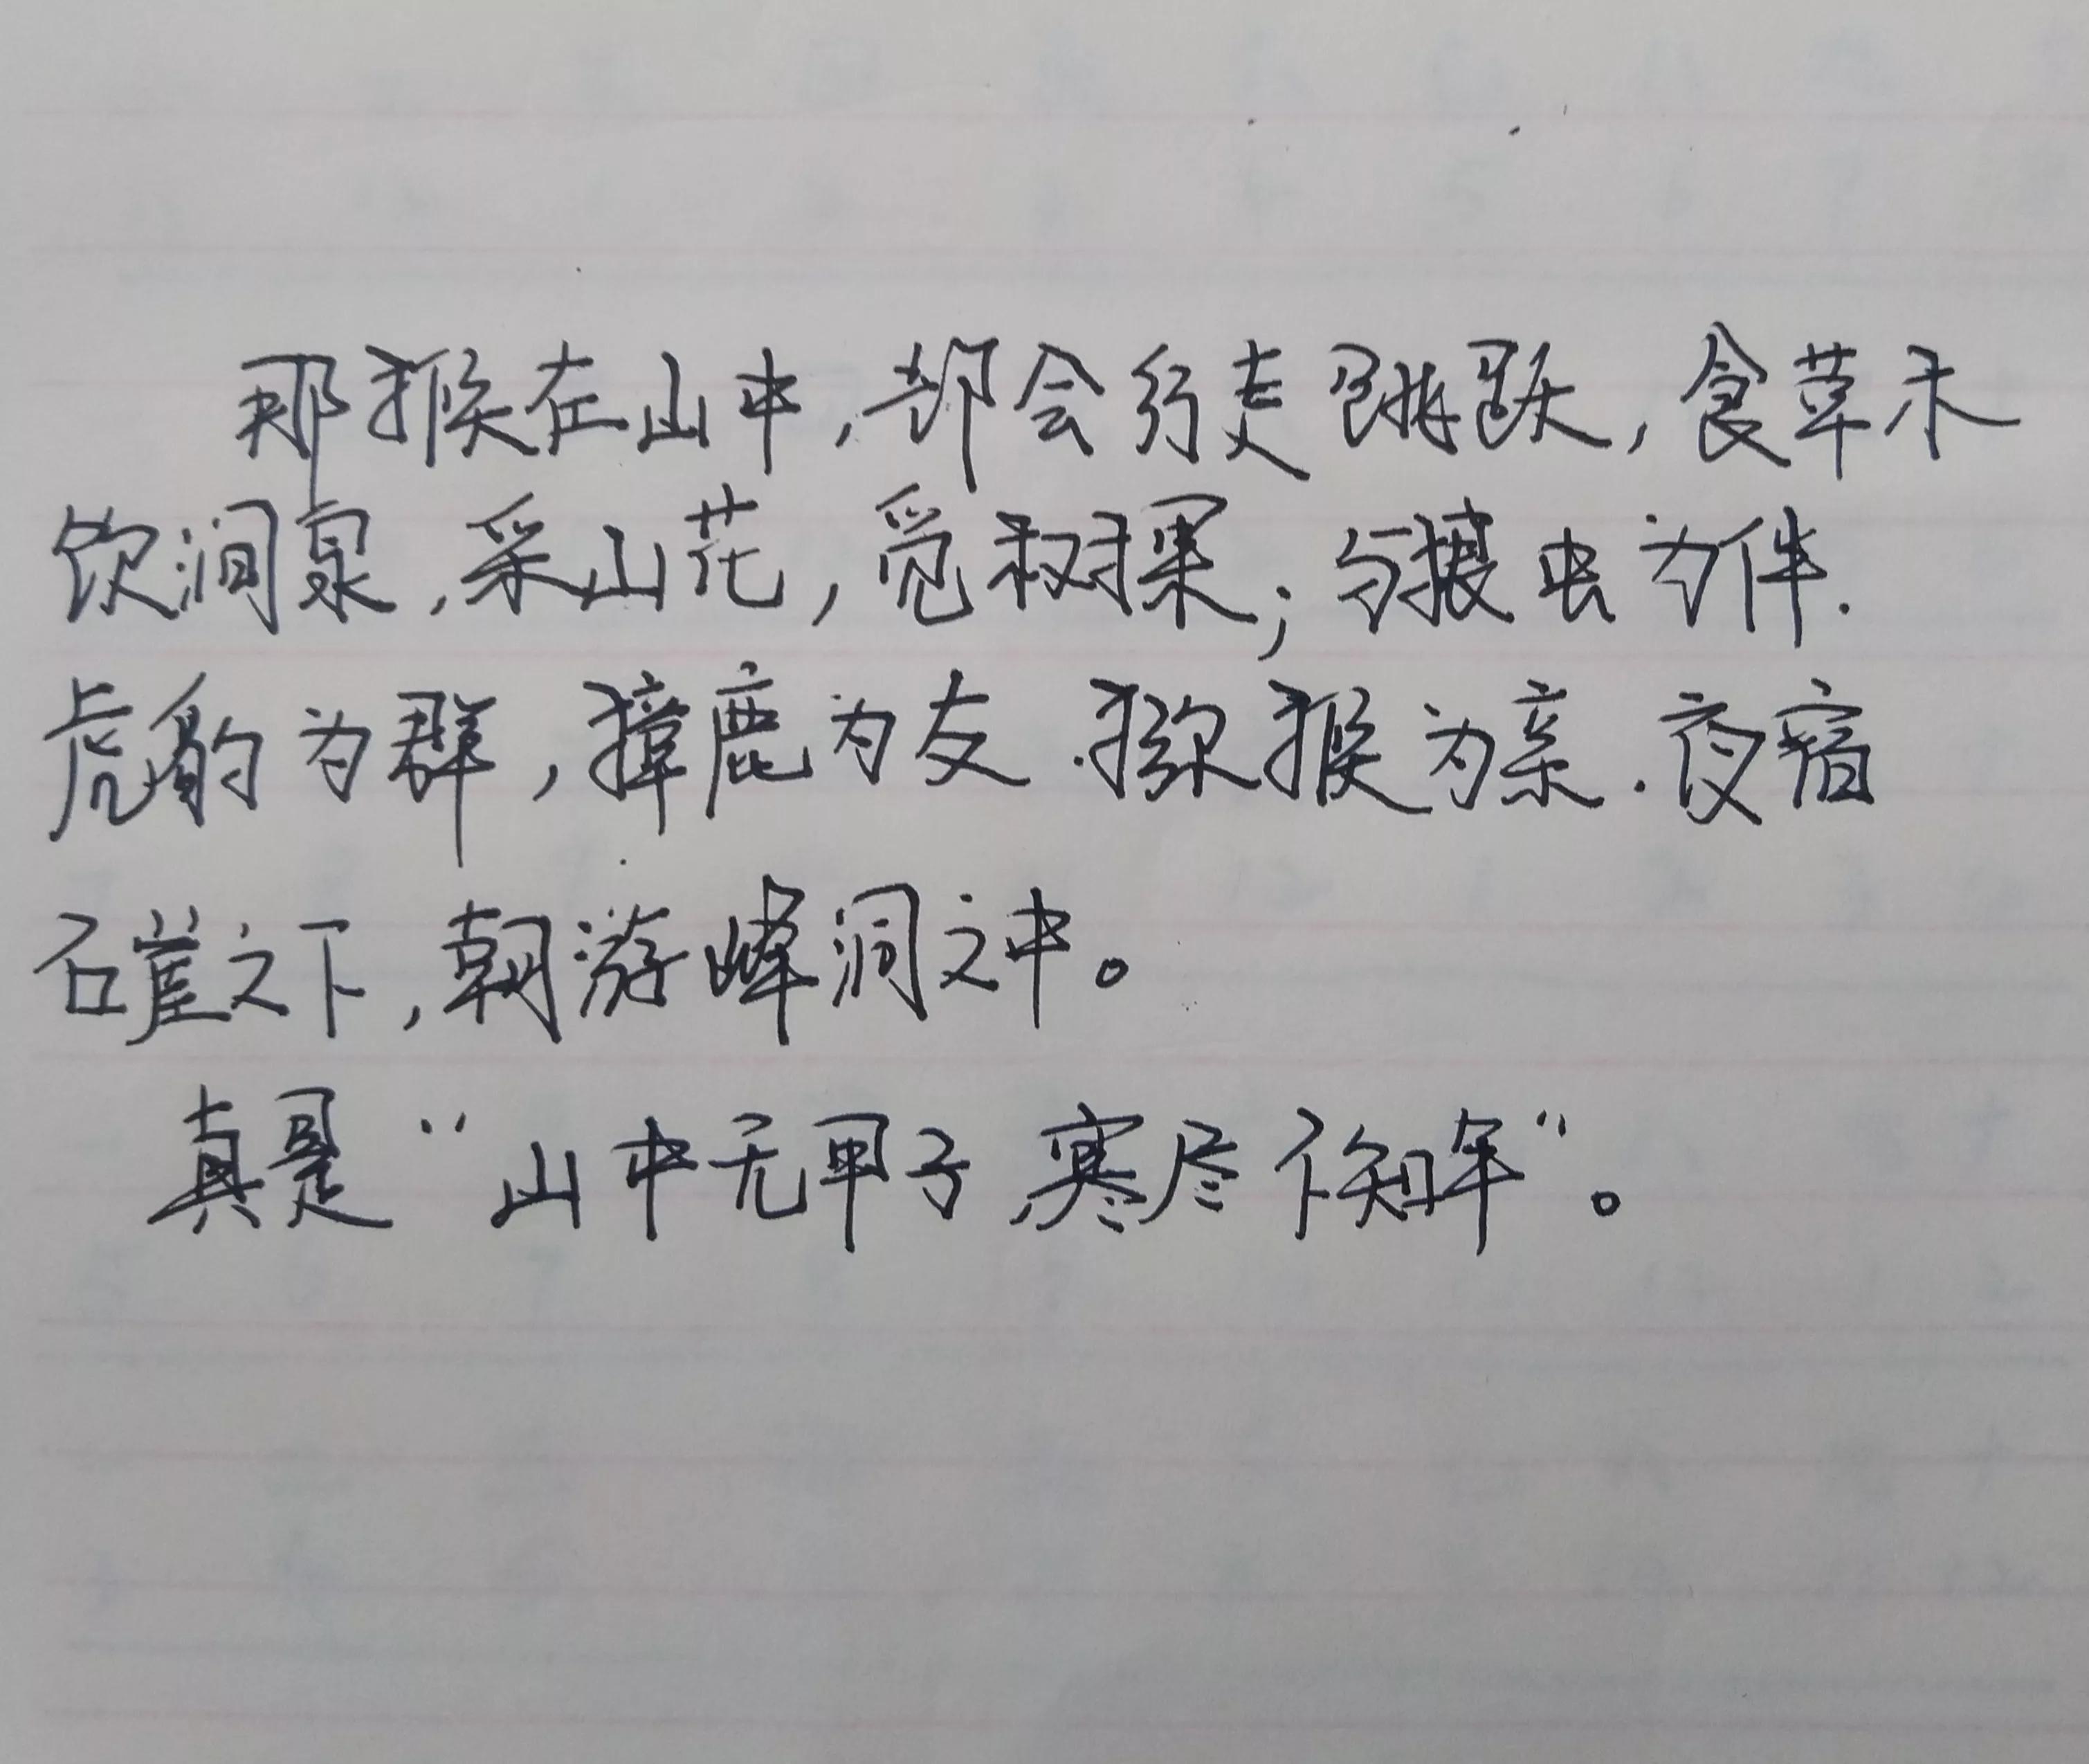 那猴在山中,却会行走跳跃,食草木
饮涧泉,采山花,觅树果;与狼虫为伴.
虎豹为群,獐鹿为友.猕猴为亲.夜宿
石崖之下,朝游峰洞之中。
真是“山中无甲子,寒尽不知年”。